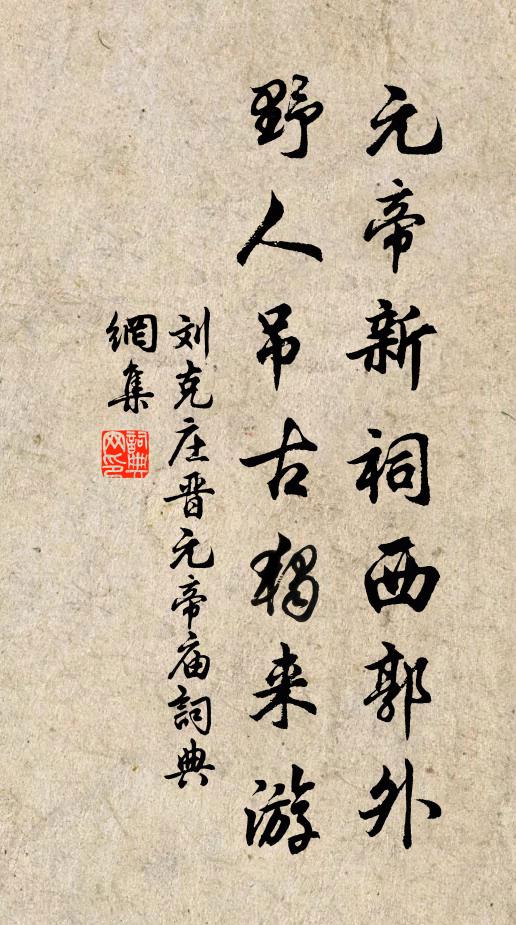 元帝新祠西郭外
野人吊古独来游
刘克庄晋元帝庙詞典
網集
詞典网印